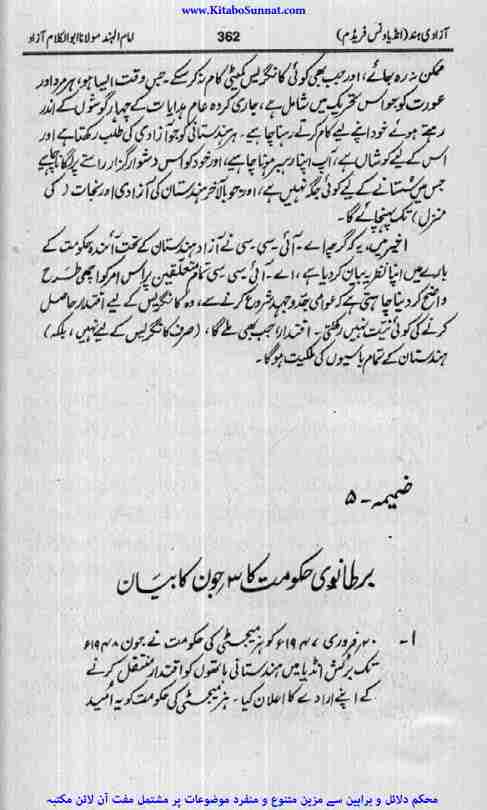 www.KitaboSunnat.com
آزادی ہند (انڈیا ونس فریڈم) 362 امام الہند مولانا ابوالکلام آزاد
ممکن نہ رہ جائے، اور جب بھی کوئی کانگریس کمیٹی کام نہ کر سکے۔ جس وقت ایسا ہو، ہر مرد اور
عورت کو جو اس تحریک میں شامل ہے، جاری کردہ عام ہدایات کے چہار گوشوں کے اندر
رہتے ہوئے خود اپنے لیے کام کرتے رہنا چاہیے۔ ہر ہندستانی کو جو آزادی کی طلب رکھتا ہے اور
اس کے لیے کوشاں ہے، آپ اپنا رہبر ہونا چاہیے، اور خود کو اس دشوار گزار راستے پر لگانا چاہیے
جس میں سستانے کے لیے کوئی جگہ نہیں ہے، اور جو بالآخر ہندستان کی آزادی اور نجات (کی
منزل) تک پہنچائے گا۔
اخیر میں، یہ کہ گرچہ اے۔ آئی۔ سی۔ سی نے آزاد ہندستان کے تحت آئندہ حکومت کے
بارے میں اپنا نظریہ بیان کر دیا ہے، اے۔ آئی۔ سی سی تمام متعلقین پر اس امر کو اچھی طرح
واضح کر دینا چاہتی ہے کہ عوامی جدوجہد شروع کرنے سے، وہ کانگریس کے لیے اقتدار حاصل
کرنے کی کوئی نیت نہیں رکھتی۔ اقتدار جب بھی ملے گا، (صرف کانگریس کے لیے نہیں، بلکہ)
ہندستان کے تمام باسیوں کی ملکیت ہو گا۔
ضمیمہ۔ ۵
برطانوی حکومت کا ۳ جون کا بیان
۱۔ ۲۰ فروری ۱۹۴۷ء کو ہز میجسٹی کی حکومت نے جون ۱۹۴۸ء
تک برٹش انڈیا میں ہندستانی ہاتھوں کو اقتدار منتقل کرنے
کے اپنے ارادے کا اعلان کیا۔ ہز میجسٹی کی حکومت کو یہ امید
محکم دلائل و براہین سے مزین متنوع و منفرد موضوعات پر مشتمل مفت آن لائن مکتبہ